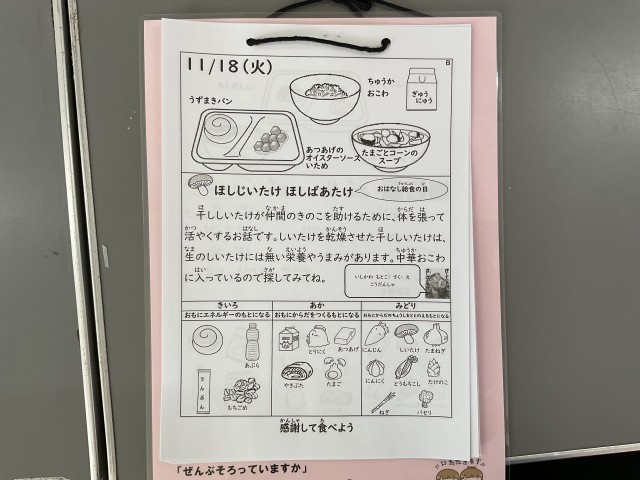 11/18(火)
B
うずまきパン
ちゅうか
おこわ
ぎゅう
にゅう
あつあげの
オイスターソース
いため
たまごとコーンの
スープ
ほしじいたけ ほしばあたけ
おはなし給食の日
干ししいたけが仲間のきのこを助けるために、体を張って
活やくするお話です。しいたけを乾燥させた干ししいたけは、
生のしいたけには無い栄養やうまみがあります。中華おこわ
に入っているので探してみてね。
いしかわ もとこ：さく・え
こうだんしゃ
きいろ
あか
みどり
おもにエネルギーのもとになる
おもにからだをつくるもとになる
おもにからだのちょうしをととのえるもとになる
あぶら
でんぷん
もちごめ
とりにく
あつあげ
やきぶた
たまご
にんじん
しいたけ
たまねぎ
にんにく
とうもろこし
たけのこ
ねぎ
パセリ
感謝して食べよう
「ぜんぶそろっていますか」